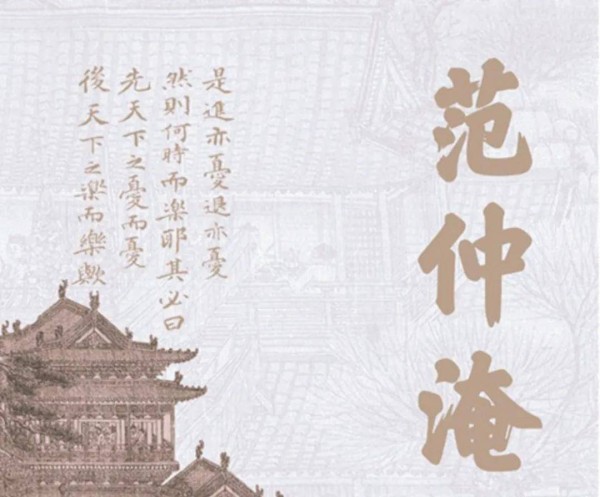 范仲淹
是進亦憂退亦憂
然則何時而樂耶其必曰
先天下之憂而憂
後天下之樂而樂歟